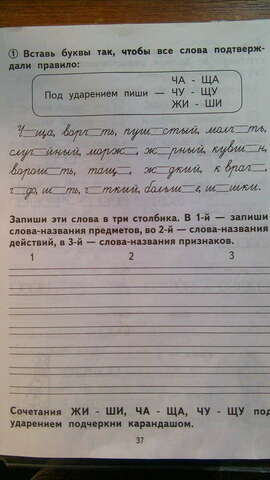 1 Вставь буквы так, чтобы все слова подтверж-
дали правило:
ЧА - ЩА
Под ударением пиши — ЧУ - ЩУ
ЖИ - ШИ
Ч_ща, ворч_ть, пуш_стый, молч_ть,
случ_йный, морж_, ж_рный, кувш_н,
ворош_ть, тащ_, ж_дкий, к врач_,
ч_до, ш_ть, ч_ткий, больш_е, ш_шки.
Запиши эти слова в три столбика. В 1-й — запиши
слова-названия предметов, во 2-й — слова-названия
действий, в 3-й — слова-названия признаков.
1 2 3
Сочетания ЖИ - ШИ, ЧА - ЩА, ЧУ - ЩУ под
ударением подчеркни карандашом.
37